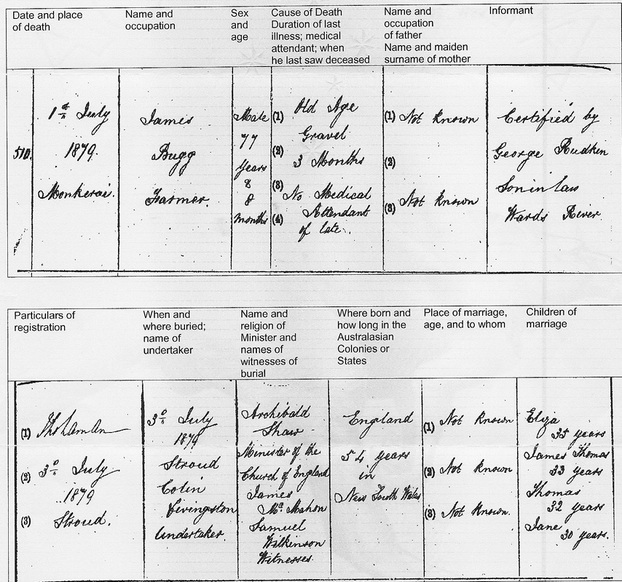 Date and place
of death
Name and
occupation
Sex
and
age
Cause of Death
Duration of last
illness; medical
attendant; when
he last saw deceased
Name and
occupation
of father
Name and maiden
surname of mother
Informant
510.
1st July
1879.
Monkerai.
James
Bugg
Farmer.
Male
77
years
8
8
months
(1) Old Age
Gravel
(2)
3 Months
(3)
No Medical
(4) Attendant
of late.
(1) Not Known
(2)
(3) Not Known
Certified by
George Rudkin
Son in law
Wards River
Particulars of
registration
When and
where buried;
name of
undertaker
Name and
religion of
Minister and
names of
witnesses of
burial
Where born and
how long in the
Australasian
Colonies or
States
Place of marriage,
age, and to whom
Children of
marriage
(1) Tho Laman
(2) 3d July
1879
(3) Stroud.
3d July
1879
Stroud
Colin
Livingston
Undertaker.
Archibald
Shaw
Minister of the
Church of England
James
McMahon
Samuel
Wilkinson
Witnesses.
England
54 years
in
New South Wales
(1) Not Known
(2) Not Known
(3) Not Known.
Eliza
35 years
James Thomas
33 years
Thomas
32 years
Jane
30 years.